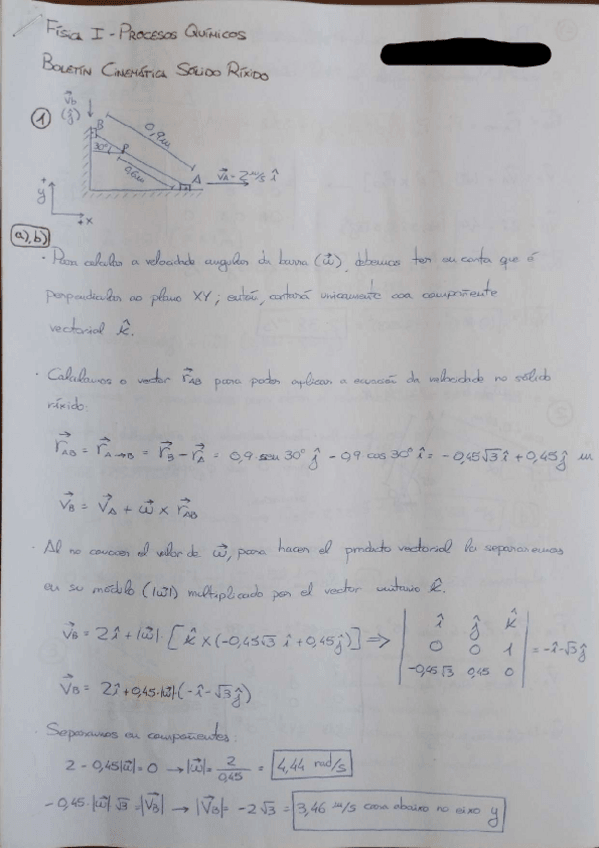 FÍSICA I - PROCESOS QUÍMICOS
BOLETÍN CINEMÁTICA SÓLIDO RÍXIDO
1
v⃗b
(ĵ)
B
0,9m
30°
P
0,6m
A
v⃗A = 2 m/s î
+
y
+x
a), b)
· Para calcular a velocidade angular da barra (ω⃗), debemos ter en conta que é
perpendicular ao plano XY; entón, contará unicamente coa compoñente
vectorial k̂.
· Calculamos o vector r⃗AB para poder aplicar a ecuación da velocidade no sólido
ríxido:
r⃗AB = r⃗A→B = r⃗B - r⃗A = 0,9·sen30° ĵ - 0,9 cos30° î = -0,45√3 î + 0,45 ĵ m
v⃗B = v⃗A + ω⃗ × r⃗AB
· Al no conocer el valor de ω⃗, para hacer el producto vectorial lo separaremos
en su módulo (|ω⃗|) multiplicado por el vector unitario k̂.
v⃗B = 2î + |ω⃗| · [k̂ × (-0,45√3 î + 0,45ĵ)] ⇒ | î ĵ k̂ | = -î-√3ĵ
0 0 1
-0,45√3 0,45 0
v⃗B = 2î + 0,45·|ω⃗|(-î-√3ĵ)
· Separamos en compoñentes:
2 - 0,45|ω⃗| = 0 → |ω⃗| = 2/0,45 = 4,44 rad/s
-0,45·|ω⃗|√3 = |v⃗B| → |v⃗B| = -2√3 = 3,46 m/s cara abaixo no eixo y